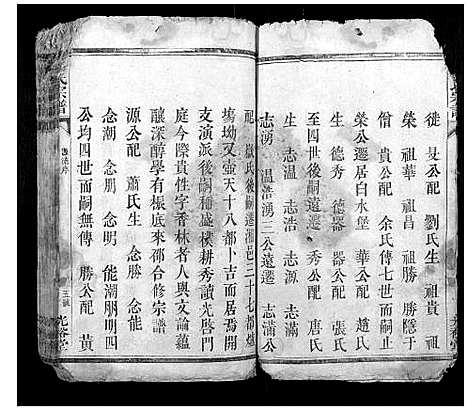 徙 旻公配 劉氏生 祖貴 祖
榮 祖華 祖昌 祖勝 勝隱于
僧 貴公配 余氏傳七世而嗣止
榮公遷居白水堡 華公配 趙氏
生 德秀 德器 器公配 張氏
至四世後嗣遠遷 秀公配 唐氏
生 志溫 志浩 志源 志滿
志湧 溫浩湧三公遠遷 志滿公
配 嚴氏後嗣遠 邑三十七都
塲坳又壺天十八都卜吉而居焉開
支演派後嗣稱盛樸耕秀讀光啓門
庭今際貴性字香林者人與文論蘊
釀深醇學有根底來邵合修宗譜
源公配 蕭氏生 念勝 念能
念潮 念朋 念明 能潮朋明四
公均四世而嗣無傳 勝公配 黃
氏宗譜